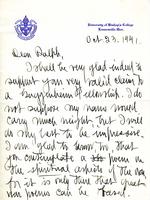 University of Bishop's College
Lennoxville Que.
Oct. 23. 1941.
Dear Ralph,
I shall be very glad indeed to
support your very valid claim to
a Guggenheim Fellowship. I do
not suppose my name would
carry much weight but I will
do my best to be impressive.
I am glad to know that
you contemplate a poem on
the spiritual aspects of the war
for it is only there that great
war poems can be found.